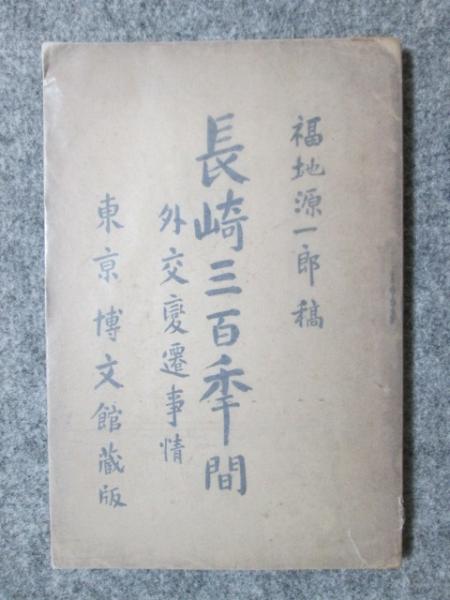 福地源一郎稿
長崎三百秊間
外交変遷事情
東京博文館蔵版